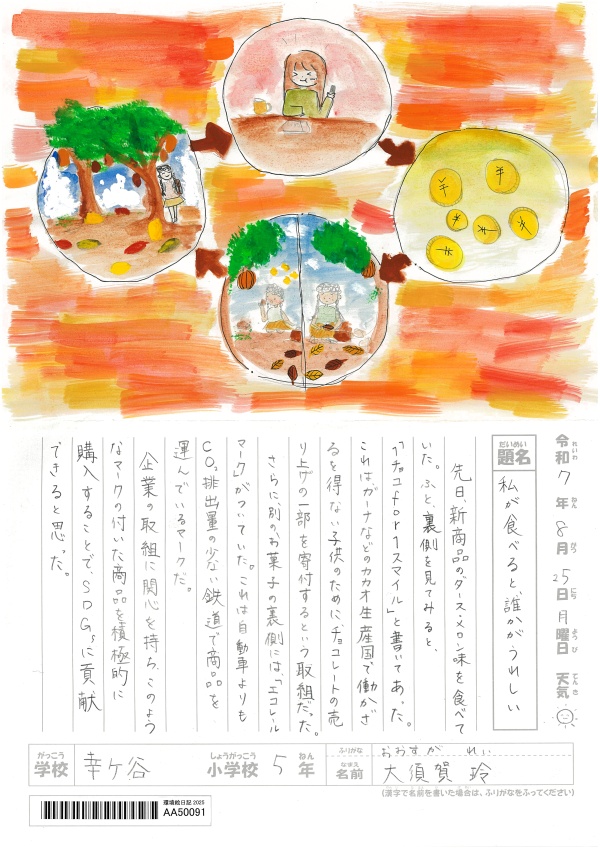 令和7年8月25日月曜日 天気
れいわ ねん がつ にち ようび てんき
だいめい
題名 私が食べると、誰かがうれしい
先日、新商品のダース・メロン味を食べて
いた。ふと、裏側を見てみると、
「1チョコfor1スマイル」と書いてあった。
これはガーナなどのカカオ生産国で働かざ
るを得ない子供のためにチョコレートの売
り上げの一部を寄付するという取組だった。
さらに別のお菓子の裏側には、「エコレール
マーク」がついていた。これは自動車よりも
CO₂排出量の少ない鉄道で商品を
運んでいるマークだ。
企業の取組に関心を持ち、このよう
なマークの付いた商品を積極的に
購入することで、SDGsに貢献
できると思った。
がっこう しょうがっこう ねん ふりがな おおすが れい
学校 幸ケ谷 小学校 5年 なまえ 名前 大須賀 玲
(漢字で名前を書いた場合は、ふりがなをふってください)
環境絵日記 2025
AA50091